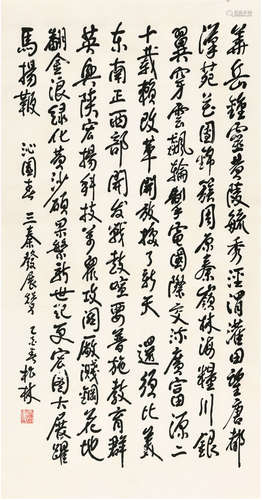 華岳鍾靈黄陵毓秀涇渭灌田望唐都
漢苑花團錦簇周原秦嶺林海糧川銀
翼穿雲飆輪掣電國際交流廣富源二
十載賴改革開放換了新天 還須比美
东南正西部開发戰鼓喧要善施教育群
英興陝宏揚科技萬眾攻関廠濺鋼花地
翻金浪緑化黄沙碩果繁新世记更宏圖大展躍
馬揚鞭 沁園春 三秦發展頌 乙亥春 林